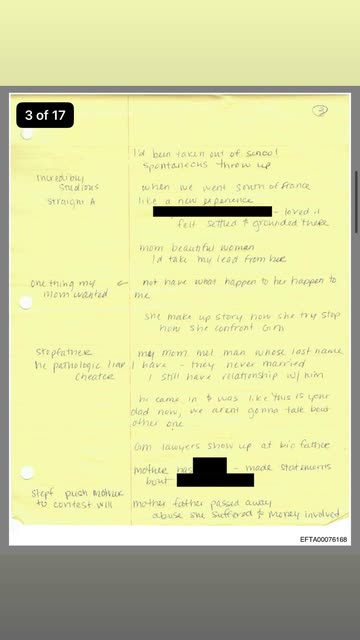 3 of 17
3
I'd been taken out of school
spontaneous throw up
Incredibly
studious
when we went south of france
straight A
like a new experience
- loved it
felt settled & grounded there
mom beautiful woman
I'd take my lead from her
one thing my
mom wanted
not have what happen to her happen to
me
she make up story how she try stop
how she confront
stepfather
he pathologic liar
cheater
my mom met man whose last name
I have - they never married
I still have relationship w/ him
he came in & was like this is your
dad now, we arent gonna talk bout
other one
lawyers show up at bio father
mother has
- made statements
bout
stepf push mother
to contest will
mother father passed away
abuse she suffered & money involved
EFTA00076168